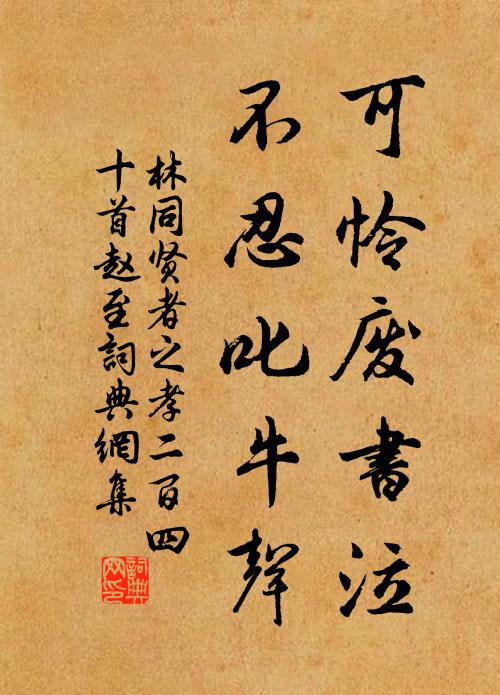 可怜废书泣
不忍叱牛聲
林同贤者之孝二百四
十首赵至詞典網集
詞典
网印